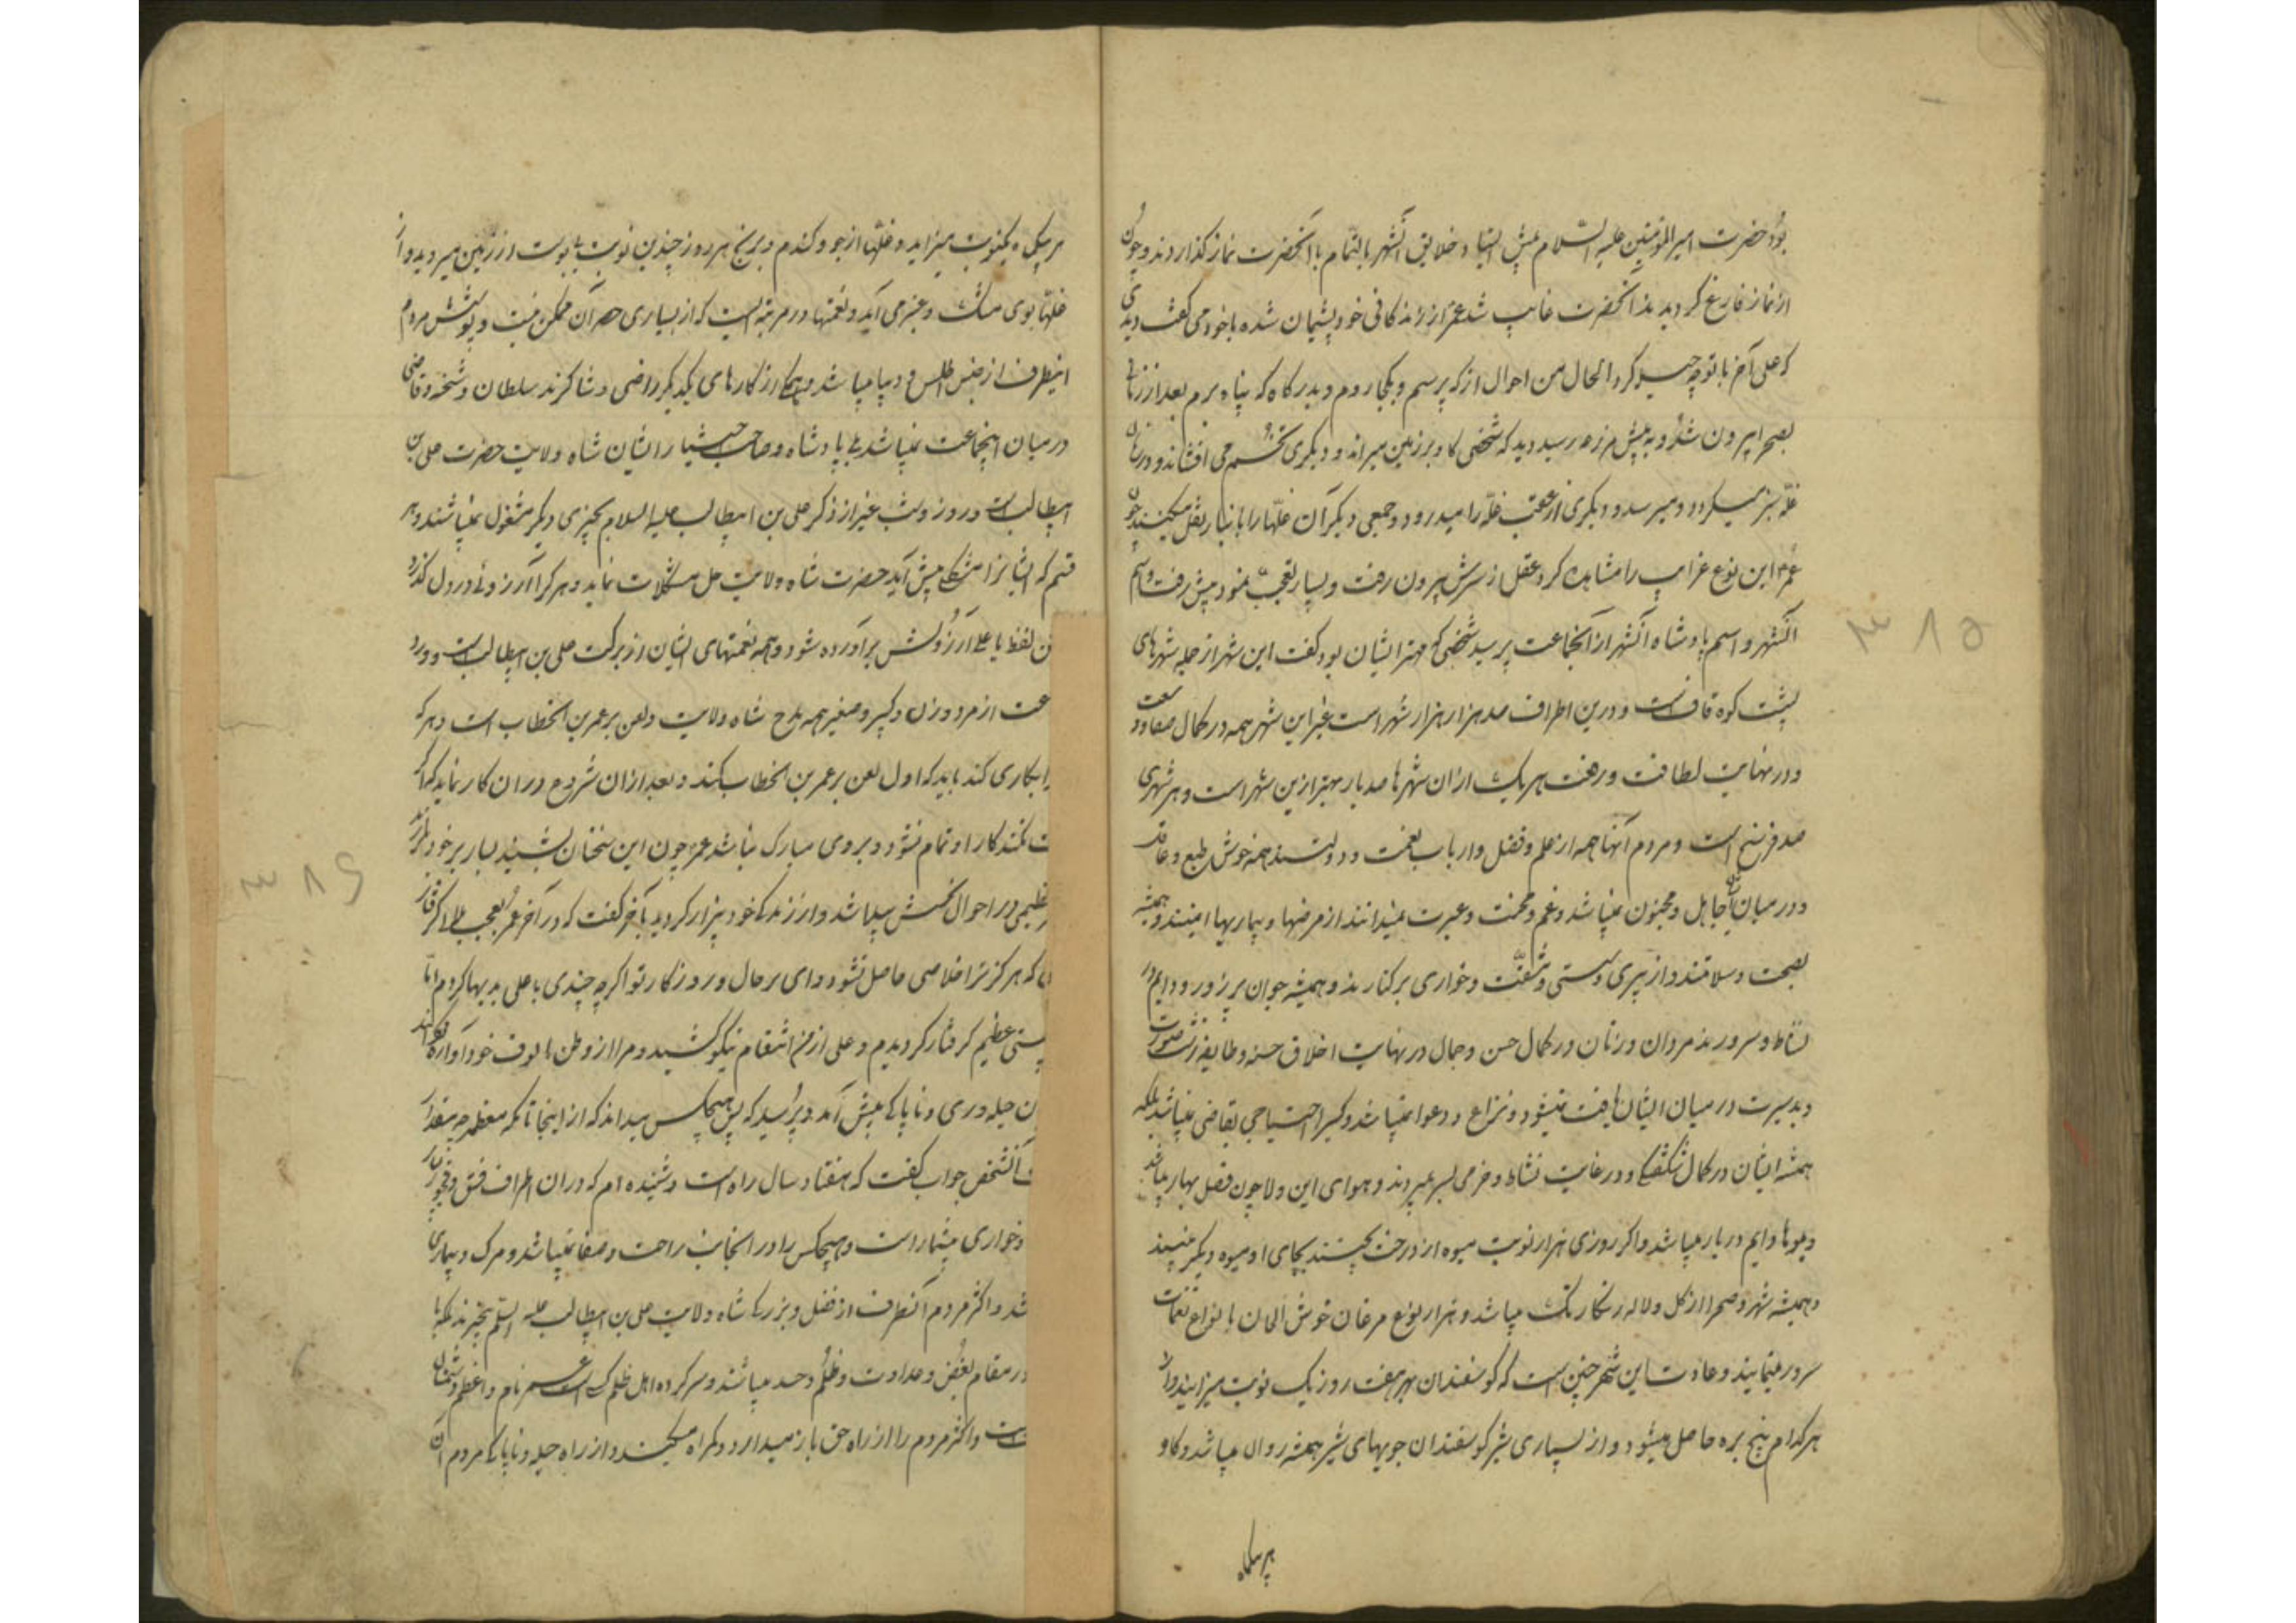 بود حضرت امیر المؤمنین علیه السلام پیش ایستاد و خلایق آنشهر بالتمام با آنحضرت نماز گذاردند و چون
از نماز فارغ گردیدند آنحضرت غایب شد عمر از زندکانی خود پشیمان شده با خود می گفت دیدی
که علی آخر با تو چه حیله کرد الحال من احوال از که پرسم و بکجا روم و بدرگاه که پناه برم بعد از زمانی
بصحرا بیرون شد و به پیش مزرعه رسید دید که شخصی کاو بر زمین میراند و دیگری تخم می افشاند و در زمان
غله سبز میگردد و میرسد و دیگری از عقب غله را میدرود و جمعی دیگر آن غلها را بانبار نقل میکنند چون
عمر این نوع غرایب را مشاهده کرد عقل از سرش بیرون رفت و بسیار تعجب نمود پیش رفت و اسم
آنشهر و اسم پادشاه آنشهر از آنجماعت پرسید شخصی که مهتر ایشان بود کفت این شهر از جمله شهرهای
پشت کوه قافست و درین اطراف صد هزار هزار شهر است غیر این شهر همه در کمال صفا و وسعت
و در نهایت لطافت و رفعت هر یک از ان شهرها صد بار بهتر ازین شهر است و هر شهری
صد فرسخ است و مردم آنها همه از علم و فضل و ارباب نعمت و دولتند همه خوش طبع و عاقلند
و در میان آن جاهل و مجنون نمیباشد و غم و محنت و عبرت نمیدانند از مرضها و بیماریها ایمنند و همیشه
بصحت و سلامتند و از پیری و سستی و مشقت و خواری برکنارند و همیشه جوان پر زور و دایم در
نشاط و سرورند مردان و زنان در کمال حسن و جمال در نهایت اخلاق حسنه و طایفه زشت صورت
و بد سیرت در میان ایشان یافت نمیشود و نزاع و دعوا نمیباشد و کسیرا احتیاجی بقاضی نمیباشد بلکه
همیشه ایشان در کمال شکفتگی و در غایت نشاط و خرمی بسر میبرند و هوای این ولا چون فصل بهار میباشد
و میوها دایم در بار میباشد و اکر روزی هزار نوبت میوه از درخت بچینند بجای او میوه دیگر میبینند
و همیشه شهر و صحرا از کل و لاله رنکارنک میباشد و هزار نوع مرغان خوش الحان بانواع نغمات
سرور مینمایند و عادت این شهر چنین است که کوسفندان بهر هفت روز یک نوبت میزایند و از
هر کدام پنج بره حاصل میشود و از بسیاری شیر کوسفندان جویهای شیر همیشه روان میباشد و کاو
هر یکماه
هر یکماه یکنوبت میزاید و غلها از جو و کندم و برنج هر روز چندین نوبت از زمین میروید و از
غلها بوی مشک و عنبر می آید و نعمتها در مرتبه ایست که از بسیاری حصر آن ممکن نیست و پوشش مردم
اینطرف از جنس اطلس و دیبا میباشد و همه از کارهای یکدیکر راضی و شاکرند سلطان و شحنه و قاضی
در میان اینجماعت نمیباشد بلی پادشاه و صاحب اختیار ایشان شاه ولایت حضرت علی بن
ابیطالب است و روز و شب غیر از ذکر علی بن ابیطالب علیه السلام بچیزی دیگر مشغول نمیباشند و هر
قسم که ایشانرا مشکلی پیش آید حضرت شاه ولایت حل مشکلات نماید و هر کرا آرزوئی در دل گذرد
ن لفظ یا علی آرزویش برآورده شود و همه نعمتهای ایشان از برکت علی بن ابیطالب است و ورد
عت از مرد و زن و کبیر و صغیر همه مدح شاه ولایت و لعن بر عمر بن الخطاب است و هر که
ابکاری کند باید که اول لعن بر عمر بن الخطاب کند و بعد از ان شروع در ان کار نماید که اکر
ت نکند کار او تمام نشود و بر وی مبارک نباشد عمر چون این سخنان بشنید بسیار بر خود بلرزید
عظیمی در احوال نحسش پیدا شد و از زندکی خود بیزار کردید با خود کفت که در آخر عمر بعجب بلا گرفتار
که هرگز ترا خلاصی حاصل نشود وای بر حال و روزگار تو اکر چه چندی با علی بدیها کردم اما
عظیم گرفتار گردیدم و علی از من انتقام نیکو کشید و مرا از وطن مالوف خود آواره گردانید
ن حیله وری و ناپاکی پیش آمد و پرسید که هیچکس میداند که از اینجا تا مکه معظمه چه مقدار
آنشخص جواب کفت که هفتاد سال راه است و شنیده ام که در ان اطراف فسق و فجور
و خواری بیشمار است و هیچکس را در انجانب راحت و صفا نمیباشد و مرک و بیماری
شد و اکثر مردم آنطرف از فضل و بزرگی شاه ولایت علی بن ابیطالب علیه السلم بیخبرند بلکه با
در مقام بغض و عداوت و ظلم و حسد میباشند و سرکرده اهل ظلم کسی است عمر نام و اعظم دشمنان
است و اکثر مردم را از راه حق باز میدارد و گمراه میکند و از راه حیله و ناپاکی مردم آن